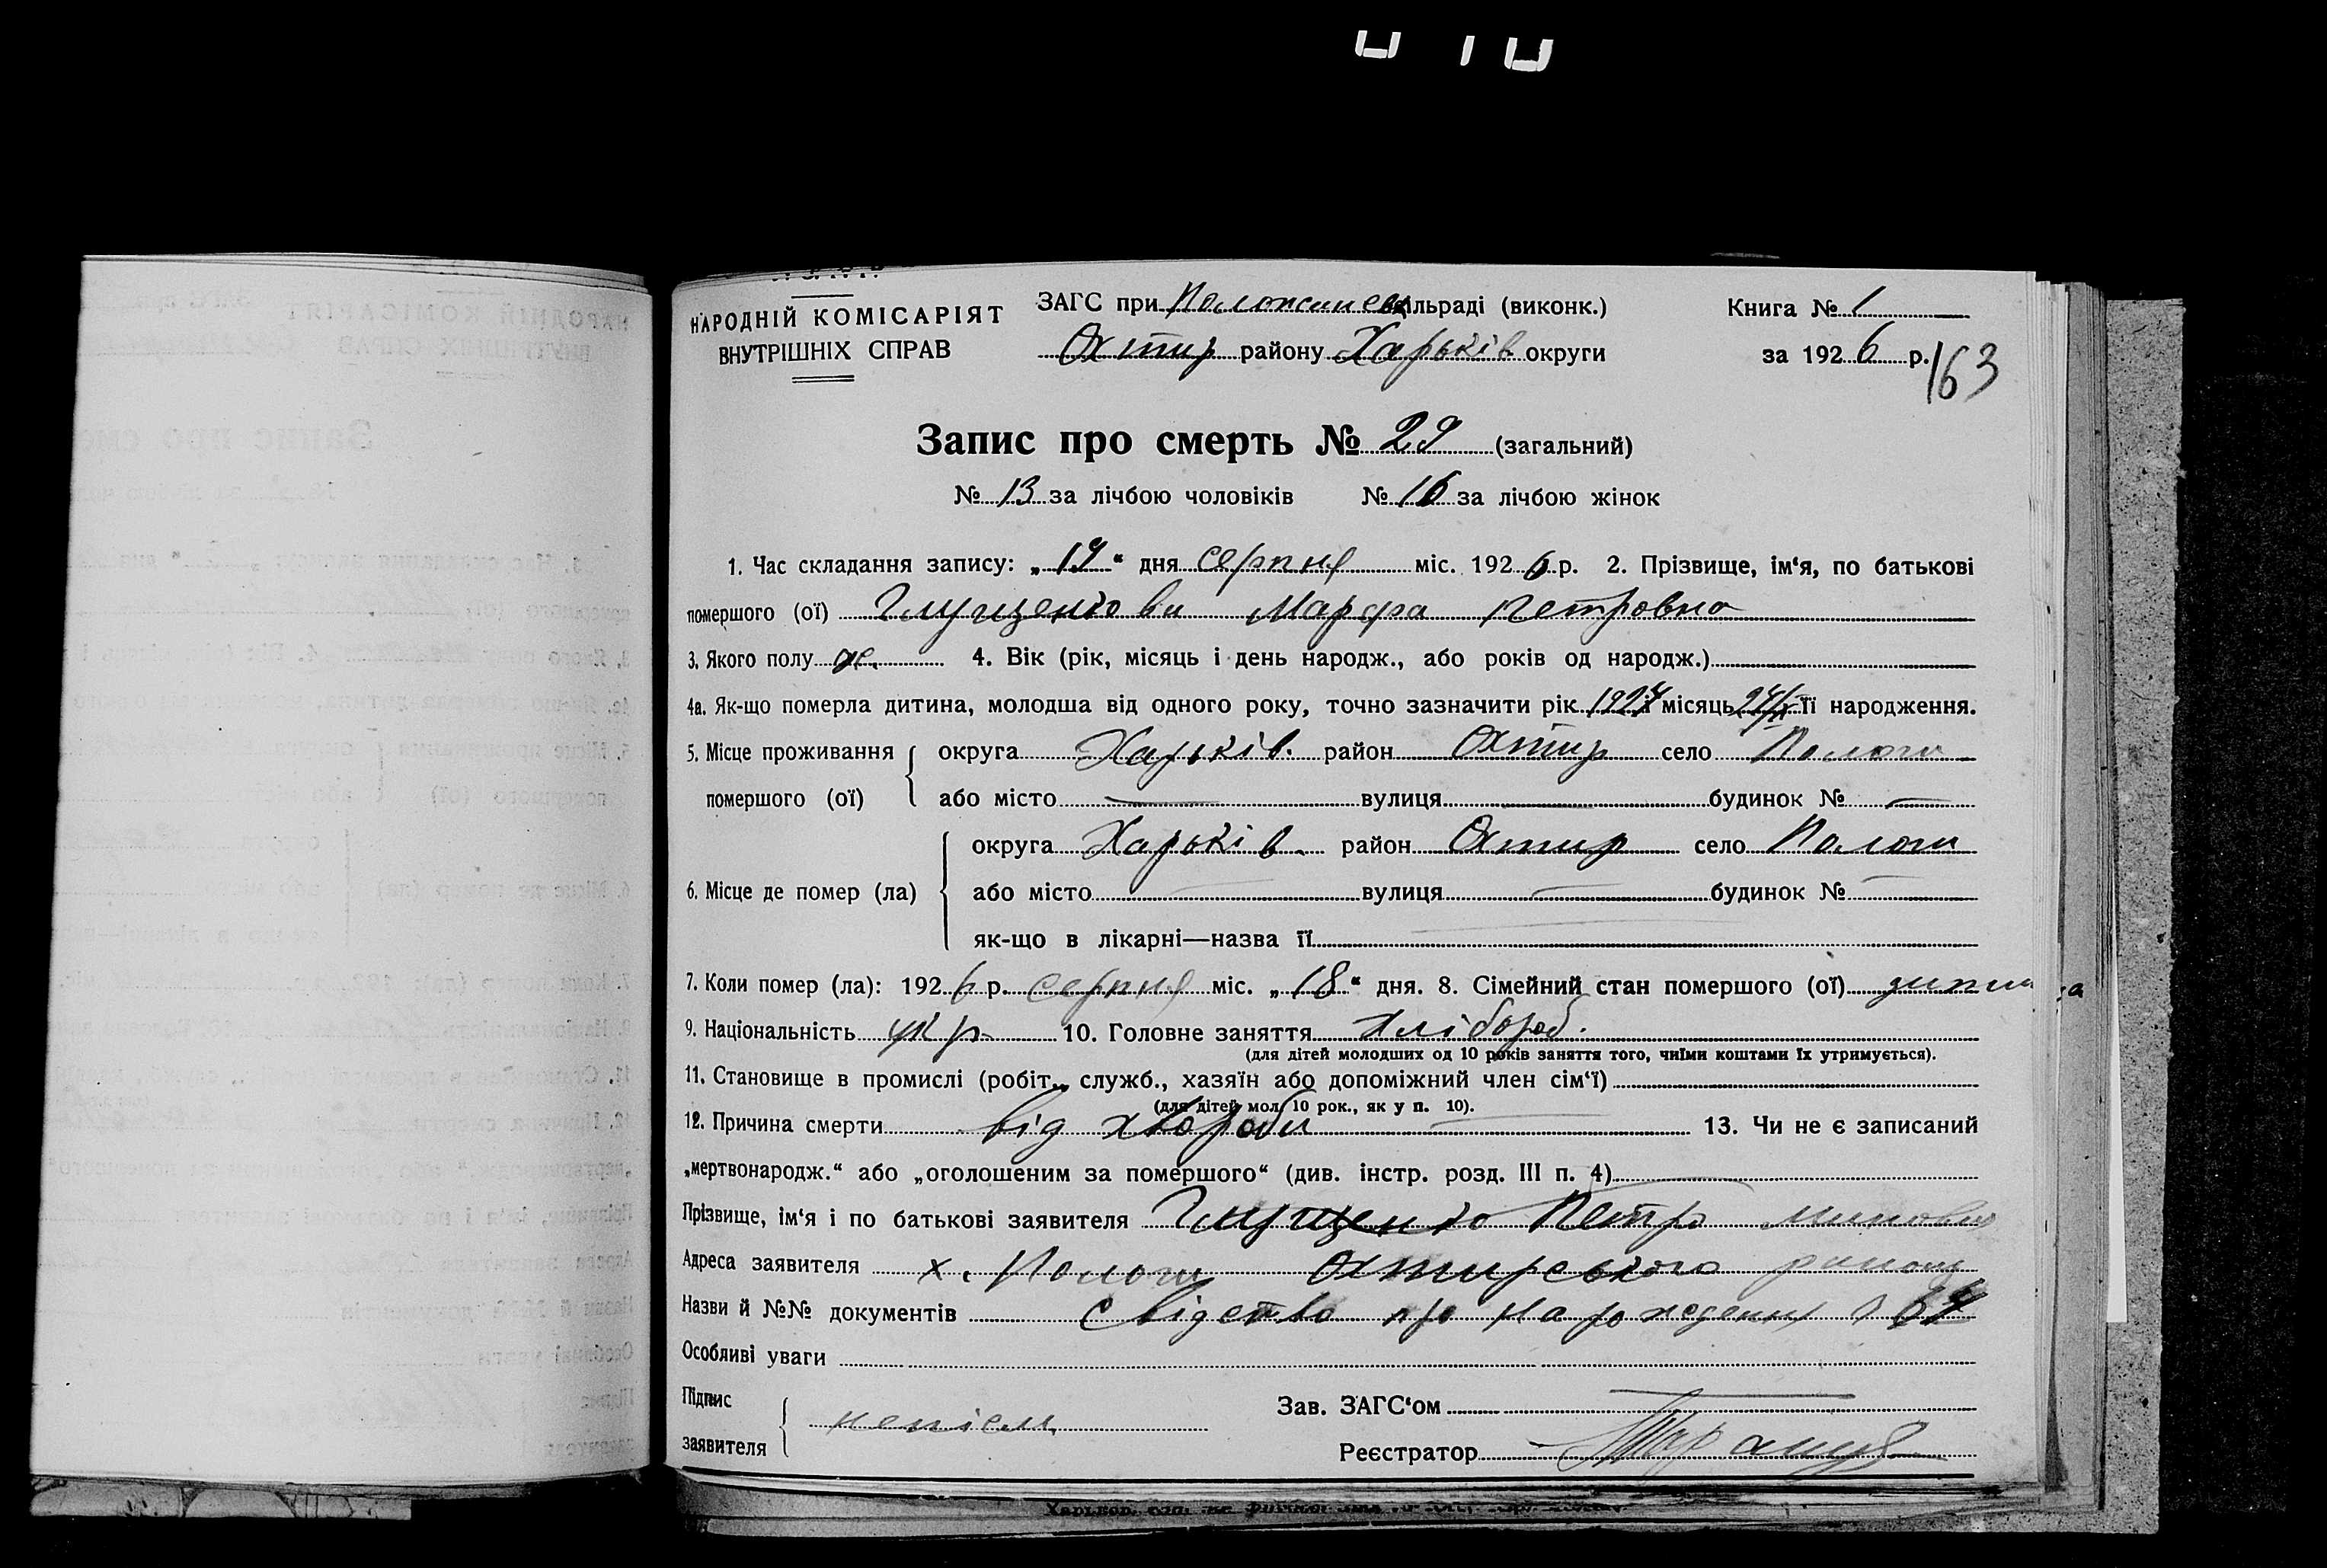 НАРОДНІЙ КОМІСАРІЯТ
ВНУТРІШНІХ СПРАВ
ЗАГС при сільраді (виконк.)
Охтир району Харьків округи
Книга № 1
за 1926 р.
163
Запис про смерть № 29 (загальний)
№ 13 за лічбою чоловіків № 16 за лічбою жінок
1. Час складання запису: „19“ дня серпня міс. 1926 р. 2. Прізвище, ім‘я, по батькові
помершого (ої) Марфа Петровна
3. Якого полу ж. 4. Вік (рік, місяць і день народж., або років од народж.)
4а. Як-що померла дитина, молодша від одного року, точно зазначити рік місяць її народження.
5. Місце проживання помершого (ої) округа Харьків. район Охтир село Пологи
або місто вулиця будинок №
6. Місце де помер (ла) округа Харьків. район Охтир село Пологи
або місто вулиця будинок №
як-що в лікарні—назва її
7. Коли помер (ла): 1926 р. серпня міс. „18“ дня. 8. Сімейний стан помершого (ої) дитина
9. Національність укр. 10. Головне заняття хлібороб.
(для дітей молодших од 10 років заняття того, чиїми коштами їх утримується).
11. Становище в промислі (робіт., служб., хазяїн або допоміжний член сім‘ї)
(для дітей мол. 10 рок., як у п. 10).
12. Причина смерти від хвороби 13. Чи не є записаний
„мертвонародж.“ або „оголошеним за помершого“ (див. інстр. розд. III п. 4)
Прізвище, ім‘я і по батькові заявителя Глущенко Петро
Адреса заявителя х. Пологи Охтирського району
Назви й №№ документів свідетво про народження
Особливі уваги
Підпис
заявителя
Зав. ЗАГС‘ом
Реєстратор